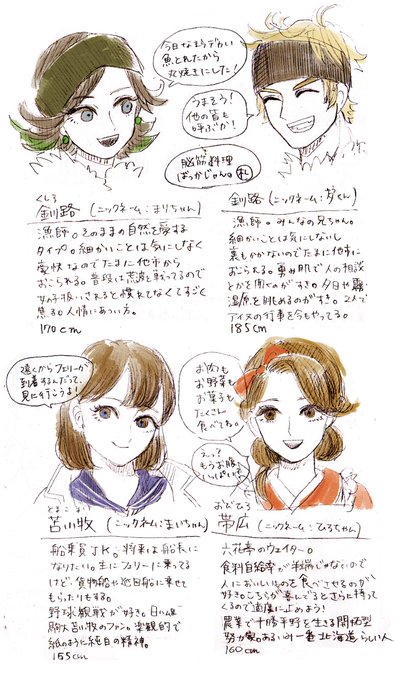 今日なまらデカい
魚とれたから
丸焼きにした！
うまそう！
他の皆も
呼ぶか！
脳筋料理
ばっかじゃん。札
くしろ
釧路（ニックネーム：まりちゃん）
漁師。そのままの自然を愛する
タイプ。細かいことは気にしなく
愛情なのでたまに他市から
おこられる。普段は荒波と戦ってるので
女の子扱いされると慣れてなくてすごく
焦る。人情にあつい方。
170cm
釧路（ニックネーム：
漁師。みんなの兄ちゃん。
細かいことは気にしないし
裏もかかないのでたまに他市に
おこられる。勇み肌で人の相談
とかを聞くのがすき。夕日や霧、
湿原を眺めるのがすき。2人で
アイヌの行事を今もやってる。
185cm
遠くからフェリーが
到着するんだって、
見に行こうよ！
お肉も
お野菜も
お菓子も
たくさん
食べてね。
えっ？
もうお腹
いっぱい？
とまこまい
苫小牧（ニックネーム：まいちゃん）
船乗員JK。将来は船長に
なりたい。主にフェリーに乗ってる
けど、貨物船や巡回船に乗せて
もらったりもする。
野球観戦が好き。日ハム
駒大苫小牧のファン。楽観的で
紙のように純白の精神。
155cm
おびひろ
帯広（ニックネーム：ひろちゃん）
六花亭のウェイター。
食料自給率が半端じゃないので
人においしいものを食べさせるのが
好き。こちらが喜んでるとさらに持って
くるので適度に止めよう！
農業で十勝平野を生きる開拓型
努力家。あるいみ一番北海道らしい人
160cm